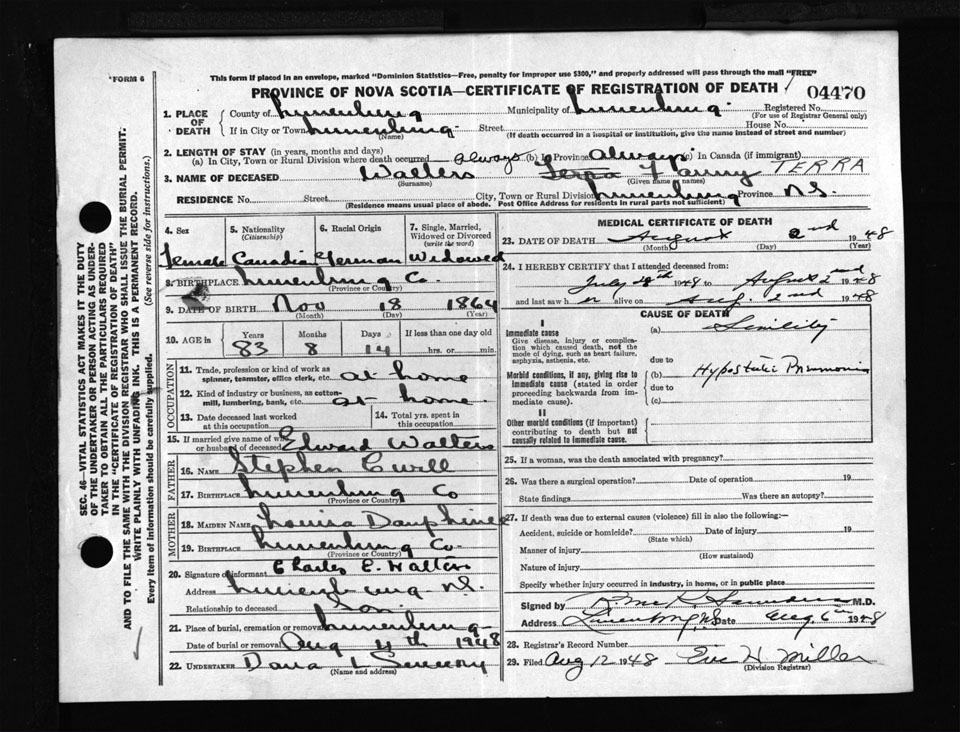 "FORM 6
This form if placed in an envelope, marked "Dominion Statistics—Free, penalty for improper use $300," and properly addressed will pass through the mail "FREE"
PROVINCE OF NOVA SCOTIA—CERTIFICATE OF REGISTRATION OF DEATH
04470
1. PLACE OF DEATH
County of Lunenburg Municipality of Lunenburg Registered No.
(For use of Registrar General only)
If in City or Town Lunenburg Street House No.
(Name) (If death occurred in a hospital or institution, give the name instead of street and number)
2. LENGTH OF STAY (in years, months and days)
(a) In City, Town or Rural Division where death occurred always (b) In Province always (c) In Canada (if immigrant)
3. NAME OF DECEASED Walters Terra Fanny TERRA
(Surname) (Given name or names)
RESIDENCE No. Street City, Town or Rural Division Lunenburg Province N.S.
(Residence means usual place of abode. Post Office Address for residents in rural parts not sufficient)
4. Sex 5. Nationality (Citizenship) 6. Racial Origin 7. Single, Married, Widowed or Divorced (write the word)
Female Canadian German Widowed
8. BIRTHPLACE Lunenburg Co.
(Province or Country)
9. DATE OF BIRTH Nov 18 1864
(Month) (Day) (Year)
10. AGE in Years Months Days If less than one day old
83 8 14 hrs. or min.
OCCUPATION
11. Trade, profession or kind of work as spinner, teamster, office clerk, etc. at home
12. Kind of industry or business, as cotton-mill, lumbering, bank, etc. at home
13. Date deceased last worked at this occupation
14. Total yrs. spent in this occupation
15. If married give name of wife or husband of deceased Edward Walters
FATHER
16. NAME Stephen
17. Birthplace Lunenburg Co
(Province or Country)
MOTHER
18. MAIDEN NAME Louisa Dauphinee
19. BIRTHPLACE Lunenburg Co.
(Province or Country)
20. Signature of informant Charles E. Walters
Address Lunenburg N.S.
Relationship to deceased Son
21. Place of burial, cremation or removal Lunenburg
Date of burial or removal Aug 4th 1948
22. UNDERTAKER Dana L Sweeny
(Name and address)
MEDICAL CERTIFICATE OF DEATH
23. DATE OF DEATH August 2nd 1948
(Month) (Day) (Year)
24. I HEREBY CERTIFY that I attended deceased from:
July 28th 1948 to August 2nd 1948
and last saw her alive on Aug. 2nd 1948
CAUSE OF DEATH
I
Immediate cause (a) Senility
Give disease, injury or complication which caused death, not the mode of dying, such as heart failure, asphyxia, asthenia, etc.
due to
Morbid conditions, if any, giving rise to immediate cause (stated in order proceeding backwards from immediate cause).
(b) Hypostatic Pneumonia
due to
(c)
II
Other morbid conditions (if important) contributing to death but not causally related to immediate cause.
25. If a woman, was the death associated with pregnancy?
26. Was there a surgical operation? Date of operation 19
State findings Was there an autopsy?
27. If death was due to external causes (violence) fill in also the following:
Accident, suicide or homicide? Date of injury 19
(State which)
Manner of injury
(How sustained)
Nature of injury
Specify whether injury occurred in industry, in home, or in public place
Signed by M.D.
Address Lunenburg N.S. Date Aug. 6th 1948
28. Registrar's Record Number
29. Filed Aug 12 1948 Eric H. Miller
(Division Registrar)
SEC. 46—VITAL STATISTICS ACT MAKES IT THE DUTY
OF THE UNDERTAKER OR PERSON ACTING AS UNDER-
TAKER TO OBTAIN ALL THE PARTICULARS REQUIRED
IN THE "CERTIFICATE OF REGISTRATION OF DEATH"
AND TO FILE THE SAME WITH THE DIVISION REGISTRAR WHO SHALL ISSUE THE BURIAL PERMIT.
WRITE PLAINLY WITH UNFADING INK. THIS IS A PERMANENT RECORD.
Every item of Information should be carefully supplied. (See reverse side for instructions.)